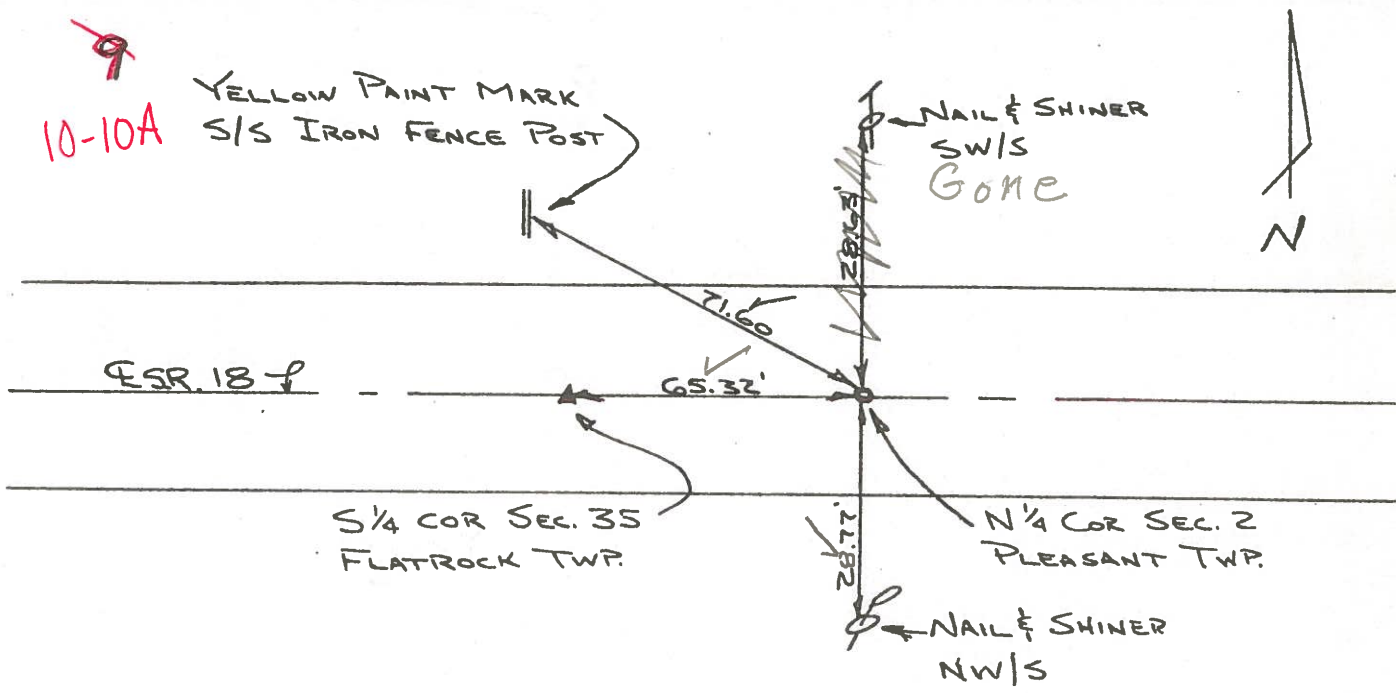 9
10-10A
YELLOW PAINT MARK
S/S IRON FENCE POST
NAIL & SHINER
SW/S
Gone
N
28.63'
71.60
℄ SR. 18
65.32'
S 1/4 COR SEC. 35
FLATROCK TWP.
N 1/4 COR SEC. 2
PLEASANT TWP.
28.77'
NAIL & SHINER
NW/S